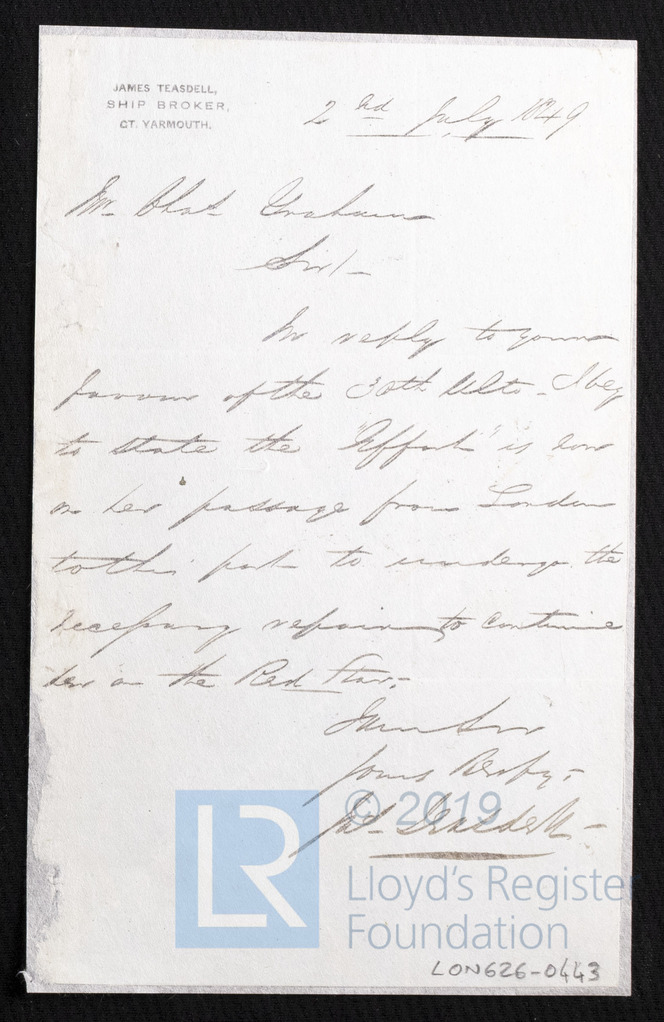 JAMES TEASDELL,
SHIP BROKER,
GT. YARMOUTH.
2nd July 1849
Mr. Chas. Graham
Sir/-
In reply to your
favour of the 30th Ulto - I beg
to state the "Effort" is now
on her passage from London
to this port to undergo the
necessary repairs to continue
her on the Red Star.
I am Sir
Yours Respy.
Jas. Teasdell
© 2019
LR
Lloyd's Register
Foundation
LON626-0443